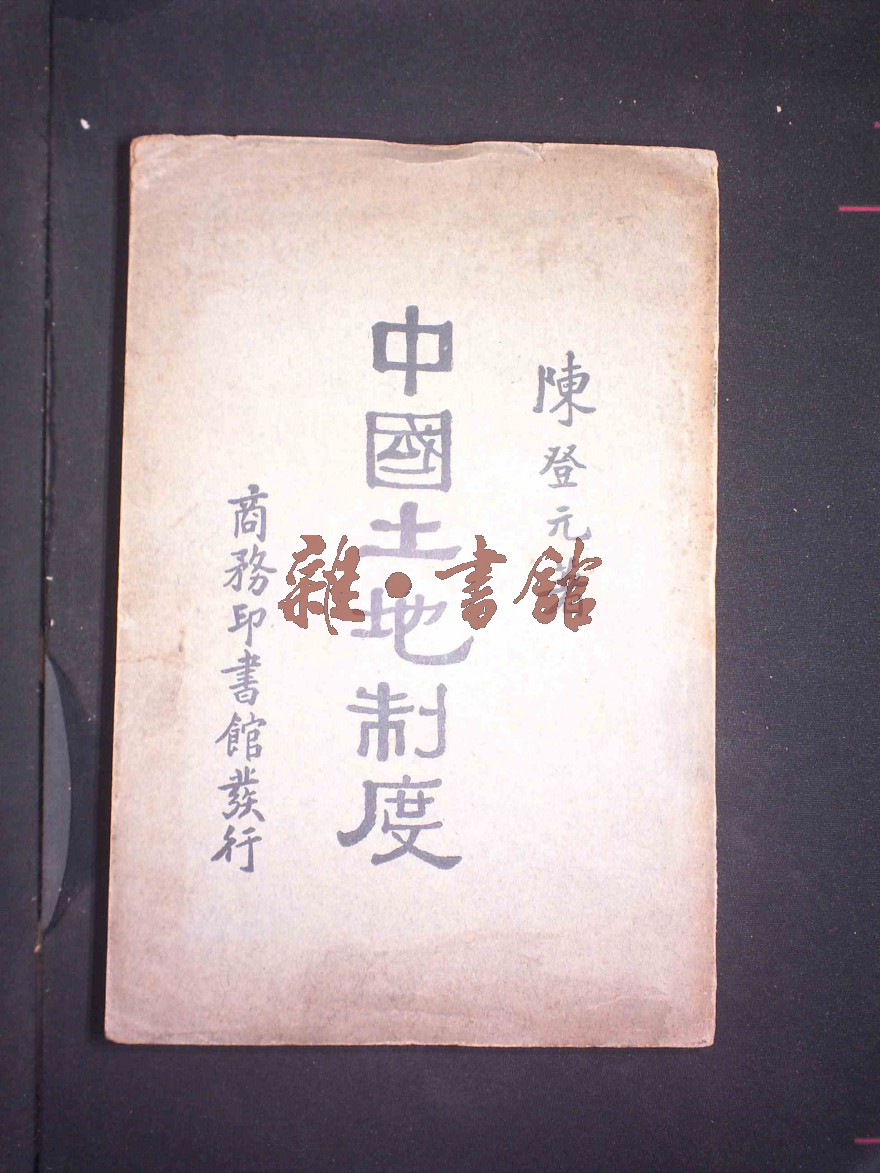 陳登元著
中國土地制度
商務印書館發行
雜·書館